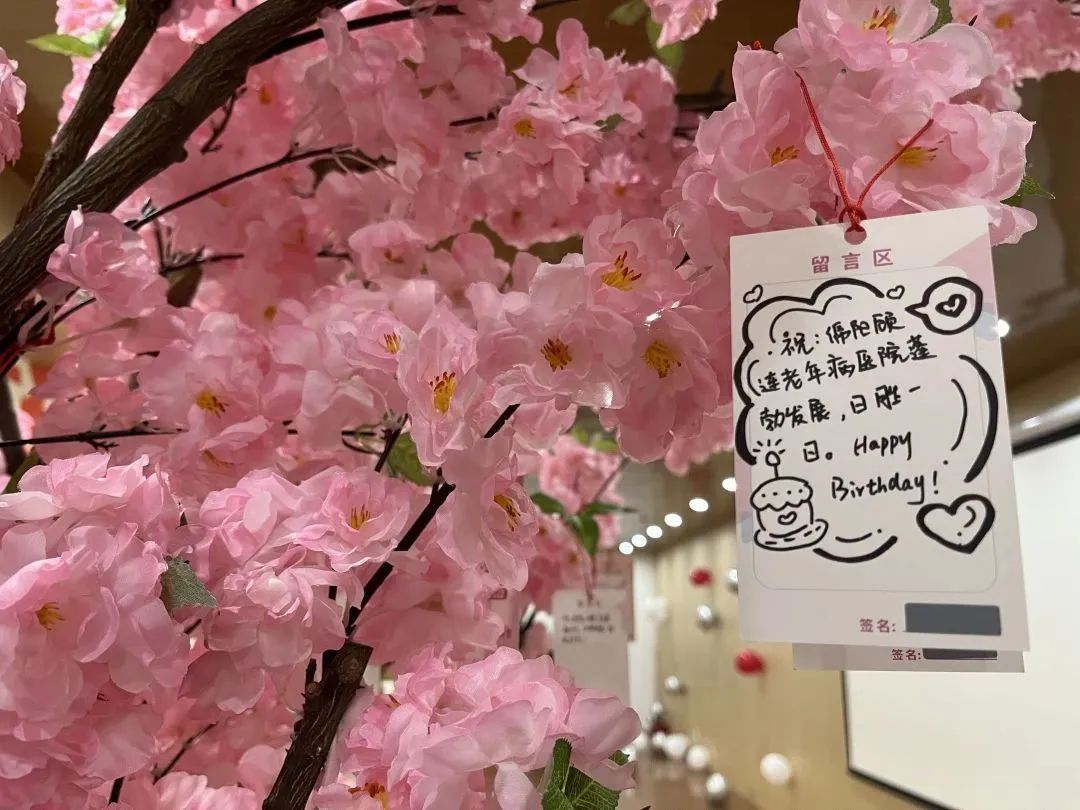 留言区
祝：绵阳颐
连老年病医院蓬
勃发展，日胜一
日。Happy
Birthday!
签名：
签名：